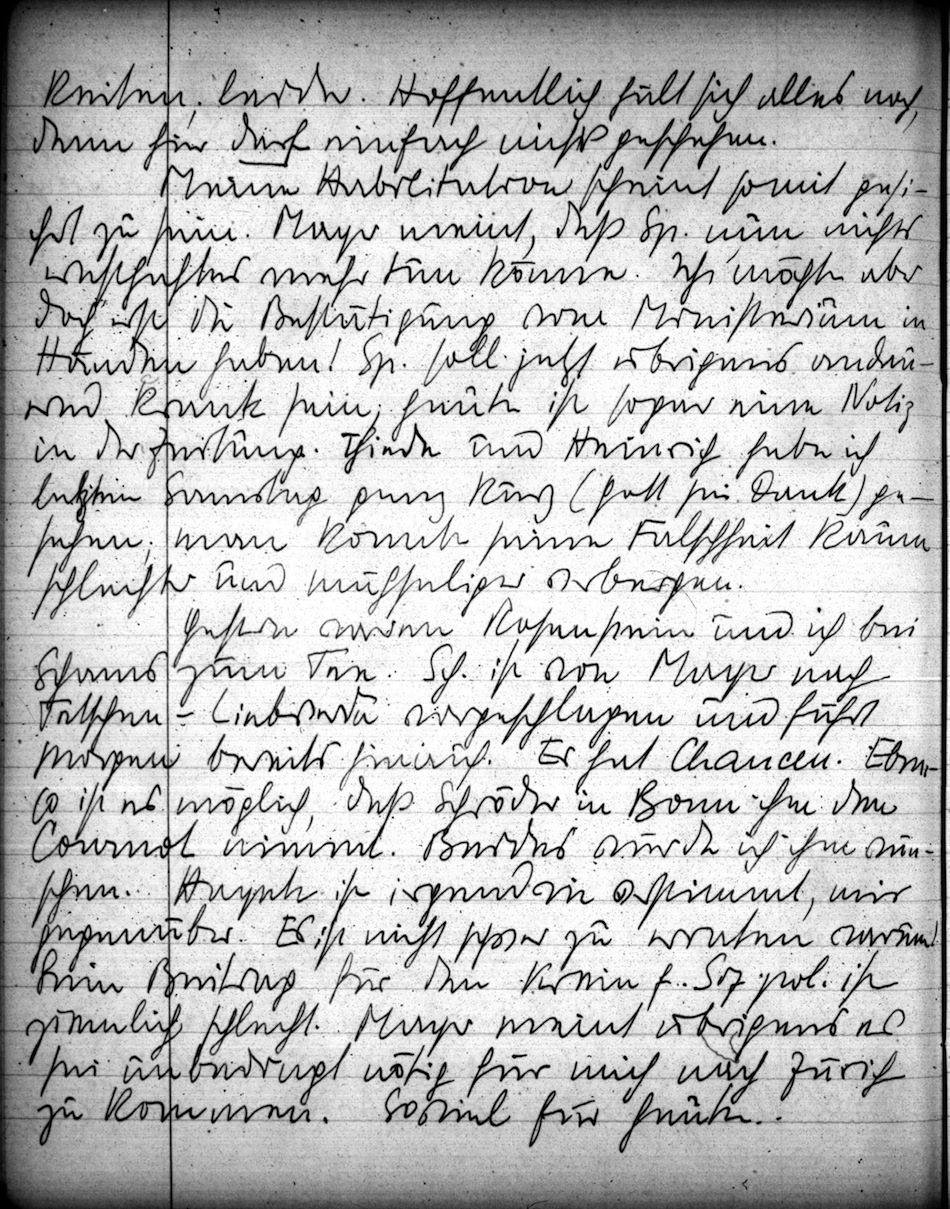 keiten, leider. Hoffentlich hält sich alles noch,
denn hier darf einfach nichts geschehen.
Meine Habilitation scheint somit gesi-
chert zu sein. Mayer meint, daß Sp. nun nichts
ernsthaftes mehr tun könne. Ich möchte aber
doch erst die Bestätigung vom Ministerium in
Händen haben! Sp. soll jetzt übrigens andau-
ernd krank sein; heute ist sogar eine Notiz
in der Zeitung. Thiede und Heinrich habe ich
letzten Samstag ganz kurz (Gott sei Dank) ge-
sehen; man konnte seine Falschheit kaum
schlechter und mühseliger verbergen.
Gestern waren Rosenstein und ich bei
Schams zum Tee. Sch. ist von Mayer nach
Tetschen-Liebwerda vorgeschlagen und fährt
morgen bereits hinauf. Er hat Chancen. Eben-
so ist es möglich, daß Schröder in Bonn ihm den
Cournot nimmt. Beides würde ich ihm wün-
schen. Hayek ist irgendwie verstimmt, mir
gegenüber. Es ist nicht schwer zu erraten warum!
Sein Beitrag für den Verein f. Soz pol. ist
ziemlich schlecht. Mayer meint übrigens es
sei unbedingt nötig für mich nach Zürich
zu kommen. Soviel für heute.